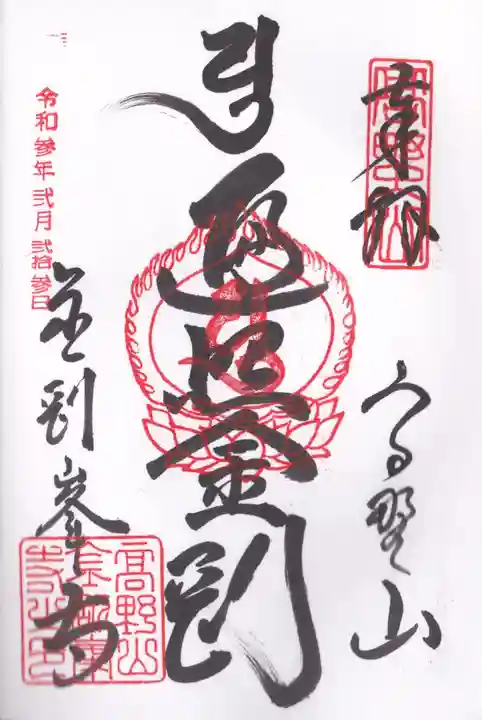 奉拝
高野山
遍照金剛
金剛峯寺
令和参年弐月弐拾参日
高野山
金剛峯
寺之印